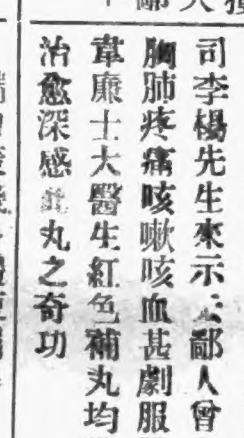 司李楊先生來示云鄙人曾
胸肺疼痛咳嗽咳血甚劇服
韋廉士大醫生紅色補丸均
治愈深感此丸之奇功